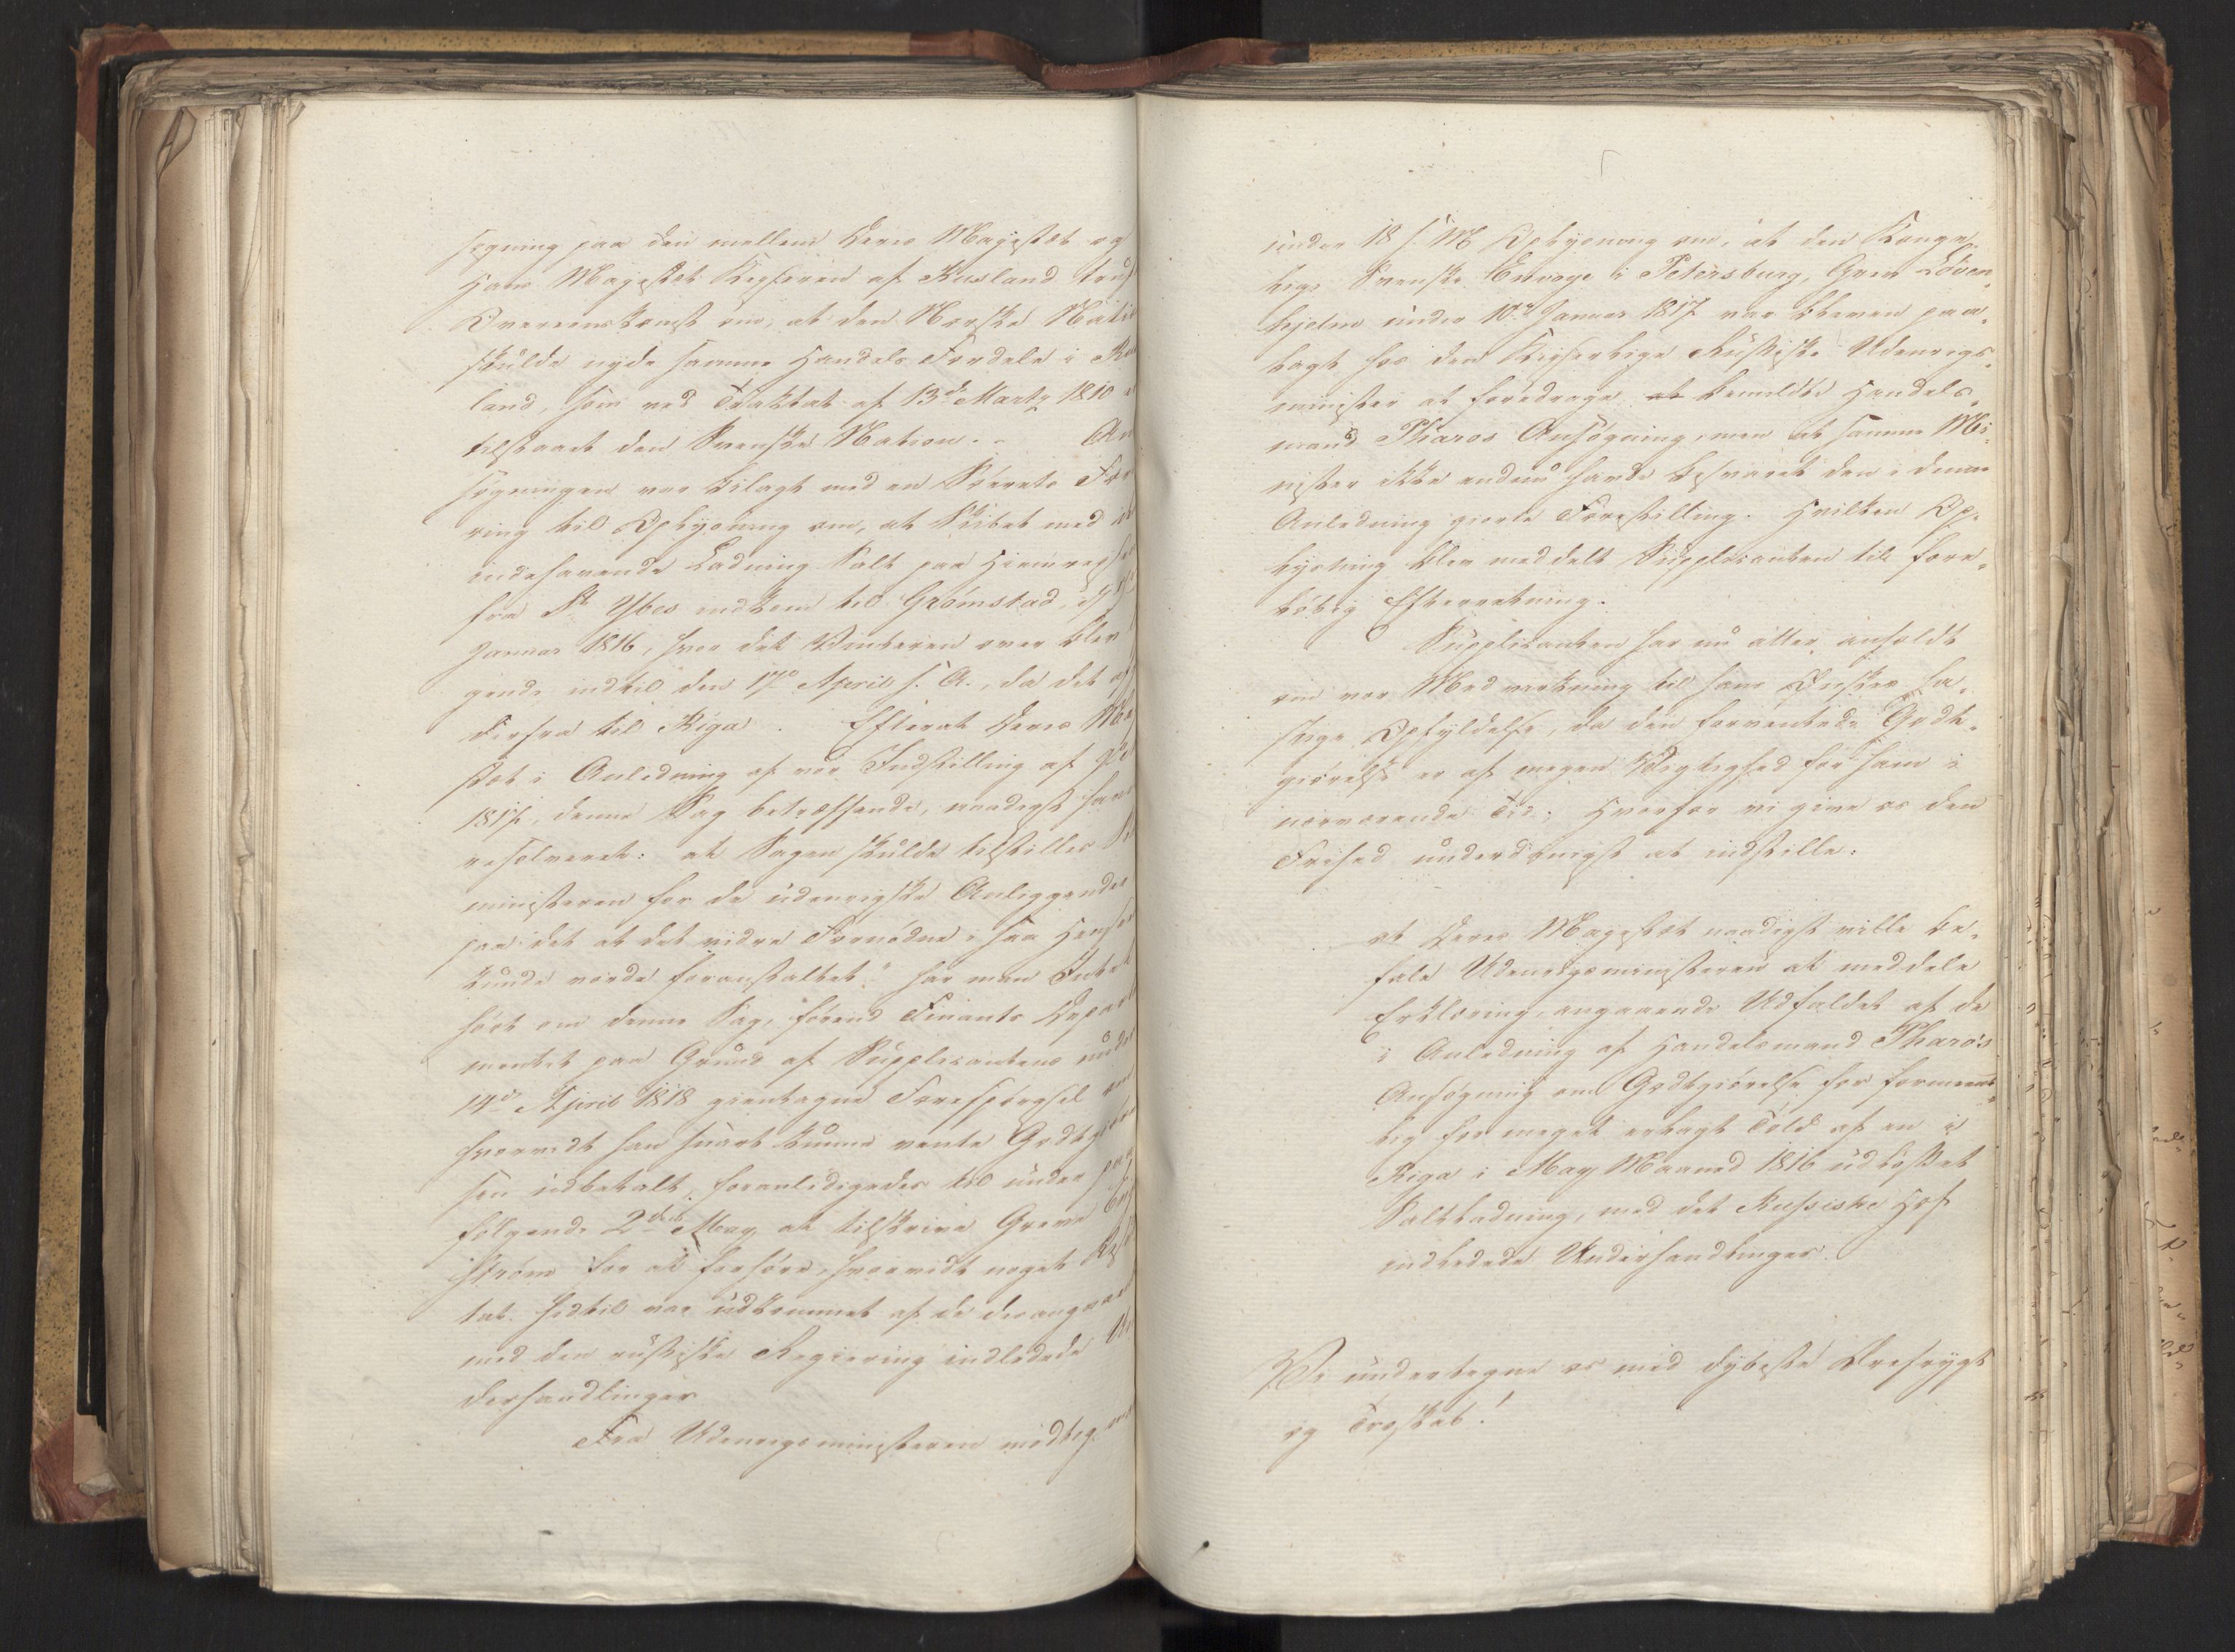 søgning paa den mellem Deres Majestæt og
Hans Majestæt Keyseren af Rusland
Overeenskomst om, at den Norske
skulde nyde samme Handels Fordele i
land, som ved Traktat af 13de Martz 1810
tilstaaet den Svenske Nation. -
søgningen var bilagt med en
ring til Oplysning om, at Skibet med
indehavende Ladning Salt paa
fra St Ybes indkom til Grømstad,
Januar 1816, hvor det Vinteren over blev
gende indtil den 17de April s. A., da det
derfra til Riga. Efterat Deres
stæt i Anledning af vor Indstilling af
1817, denne Sag betreffende, naadigst
resolveret: at Sagen skulde tilstilles
ministeren for de udenrigske Anliggender
paa det at det videre Fornødne i saa
kunde vorde foranstaltet," har man
hørt om denne Sag, førend Finants
mentet paa Grund af Supplicantens
14de April 1818 gientagne Forespørgsel
hvorvidt han snart kunne vente
sen udbetalt, foranledigedes til under
følgende 2den May at tilskrive Greve
strøm for at erfare, hvorvidt noget
tat hidtil var udkommet af de
med den russiske Regiering indledede
derhandlinger.
Fra Udenrigsministeren
under 18 s. M. Oplysning om, at den Konge-
lige Svenske Envoye i Petersburg, Grev Löven-
hjelm under 10de Januar 1817 var bleven paa-
lagt hos den Keyserlige Russiske Udenrigs-
minister at foredrage at bemeldte Handels-
mand Pharos Ansøgning, men at samme Mi-
nister ikke endnu havde besvaret den i denne
Anledning giorte Forestilling. Hvilken Op-
lysning blev meddelt Supplicanten til fore-
løbig Efterretning.
Supplicanten har nu atter anholdt
om vor Medvirkning til hans Ønskes ha-
stige Opfyldelse, da den forventede Godt-
giørelse er af megen Vigtighed for ham i
nærværende Tid; Hvorfor vi give os den
Frihed underdanigst at indstille:
at Deres Majestæt naadigst ville be-
fale Udenrigsministeren at meddele
Erklæring, angaaende Udfaldet af de
i Anledning af Handelsmand Pharo's
Ansøgning om Godtgiørelse for formeent-
lig for meget erlagt Told af en i
Riga i May Maaned 1816 udlosset
Saltladning, med det Russiske Hof
indledede Underhandlinger.
Vi undertegne os med dybeste Ærefrygt
og Troskab!